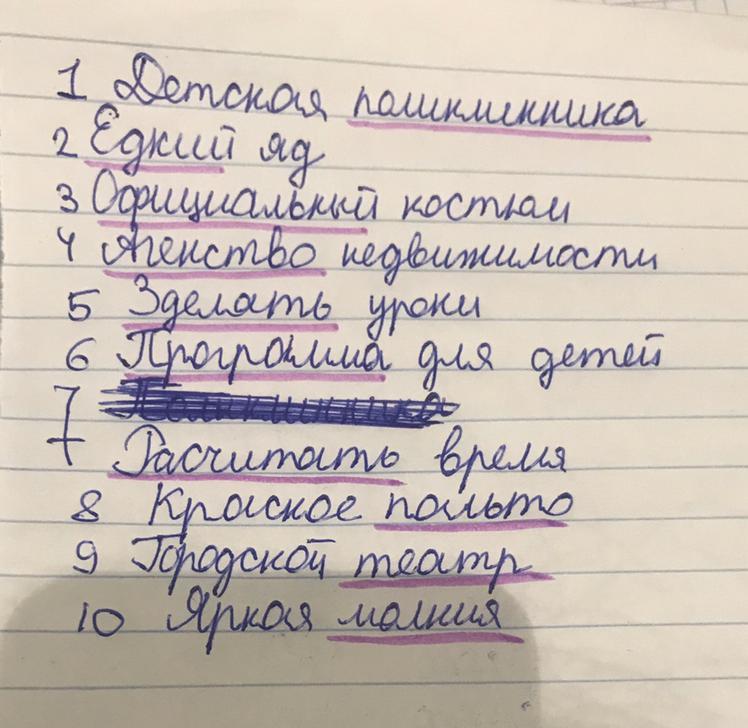 1 Детская поликлинника
2 Едкий яд
3 Официальный костюм
4 Агенство недвижимости
5 Зделать уроки
6 Программа для детей
7
Расчитать время
8 Красное пальто
9 Городской театр
10 Яркая молния